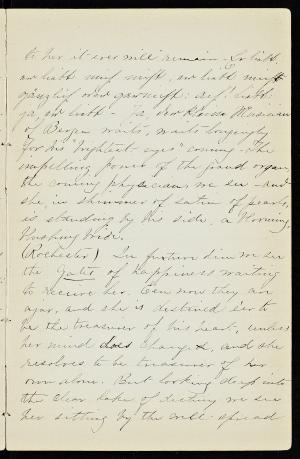 to her it ever will remain - Er liebt,
er liebt mich nicht, er liebt mich
gänzlich oder gar nicht: Ach! liebt
ja, er liebt - Ja, der Musician
of Bergen waits, waits longingly
for his "brightest eyes" coming. The
impelling power of the grand organ,
the coming physician, we see - and
she, in shimmer of satin & pearls,
is standing by his side, a
blushing bride.
(Rochester) In future dim we see
the Gates of happiness waiting
to receive her. Even now they are
ajar, and she is destined to
be the treasurer of his heart, unless
her mind does change, and she
resolves to be treasurer of her
own alone. But looking deep into
the clear lake of destiny we see
her sitting by the well-spread